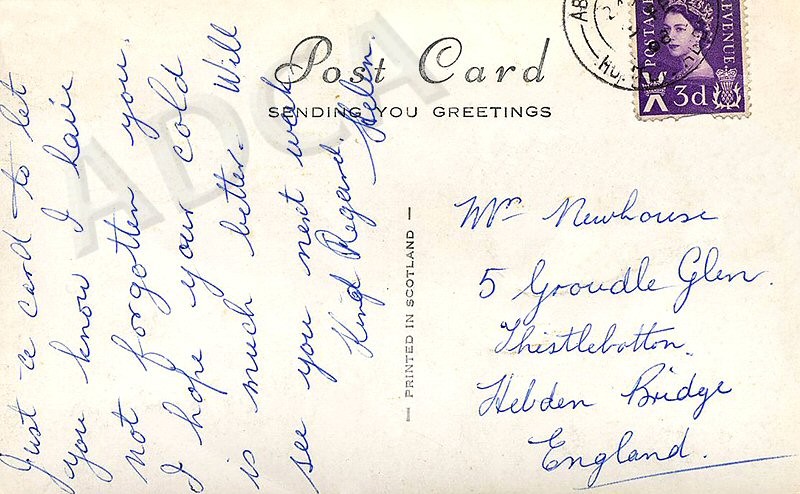 Post Card
SENDING YOU GREETINGS
Just a card to let
you know I have
not forgotten you.
I hope your cold
is much better. Will
see you next week
Kind Regard. Helen.
PRINTED IN SCOTLAND
Mr Newhouse
5 Groudle Glen.
Thistlebotton.
Hebden Bridge
England.
POSTAGE REVENUE
3d
ADCA